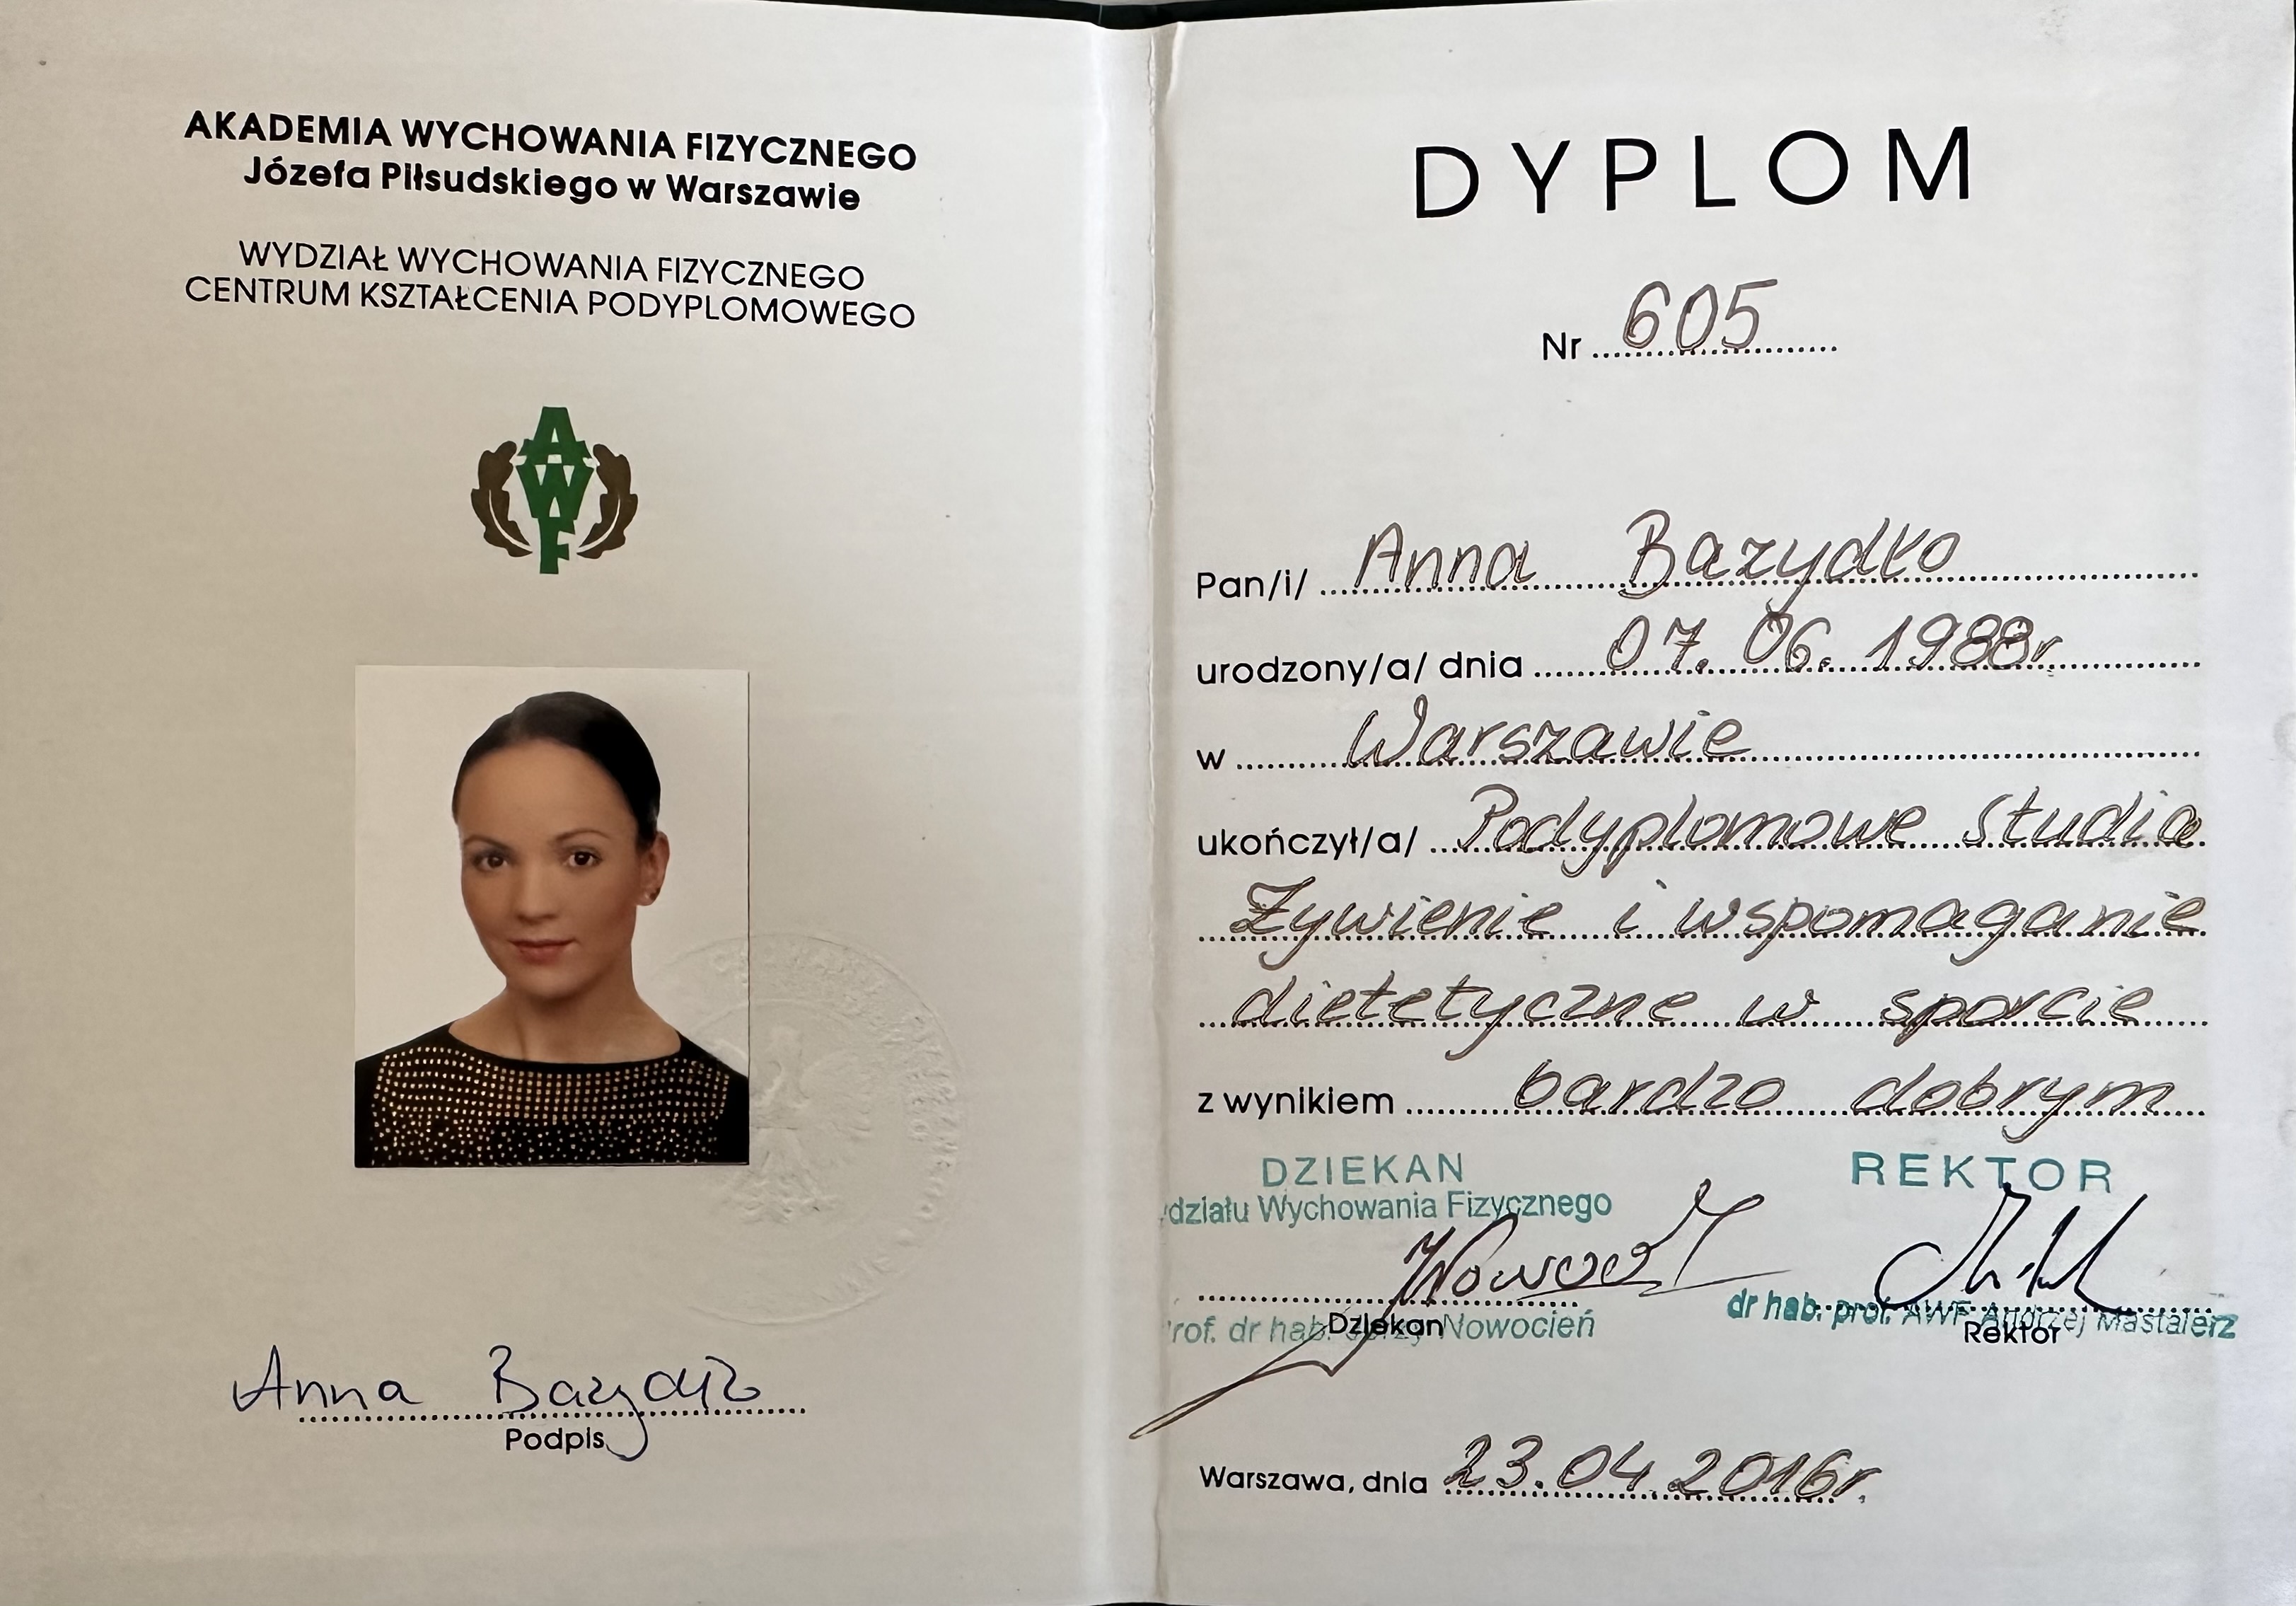 AKADEMIA WYCHOWANIA FIZYCZNEGO
Józefa Piłsudskiego w Warszawie
WYDZIAŁ WYCHOWANIA FIZYCZNEGO
CENTRUM KSZTAŁCENIA PODYPLOMOWEGO
AWF
Anna Bazydło
Podpis
DYPLOM
Nr 605
Pan/i/ Anna Bazydło
urodzony/a/ dnia 07.06.1988r.
w Warszawie
ukończył/a/ Podyplomowe Studia
Żywienie i wspomaganie
dietetyczne w sporcie
z wynikiem bardzo dobrym
DZIEKAN
działu Wychowania Fizycznego
rof. dr hab. Jerzy Nowocień
Dziekan
REKTOR
dr hab. prof. AWF Andrzej Mastalerz
Rektor
Warszawa, dnia 23.04.2016r.